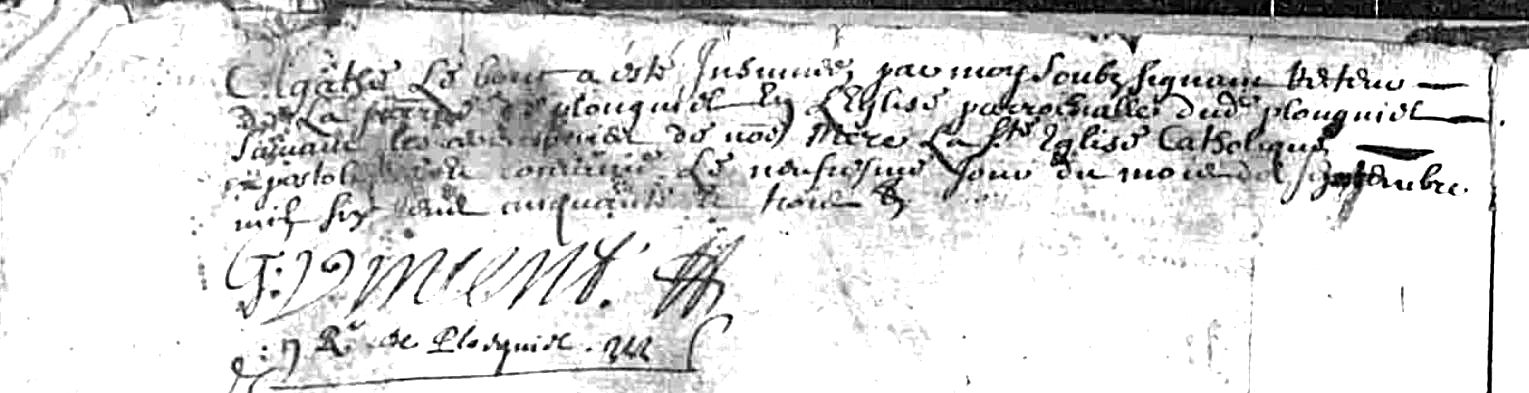 Agathe Le bout a esté Inhumée par moy soubz signant Recteur
de La parrse de plouguiel En L'Eglise parrochialle dud plouguiel
suivant les ceremonies de nore Mere La ste Eglise Catholique
apostolique et Romaine Le neufiesme jour du mois de septembre
mil six cent cinquante et trois
R de Plouguiel